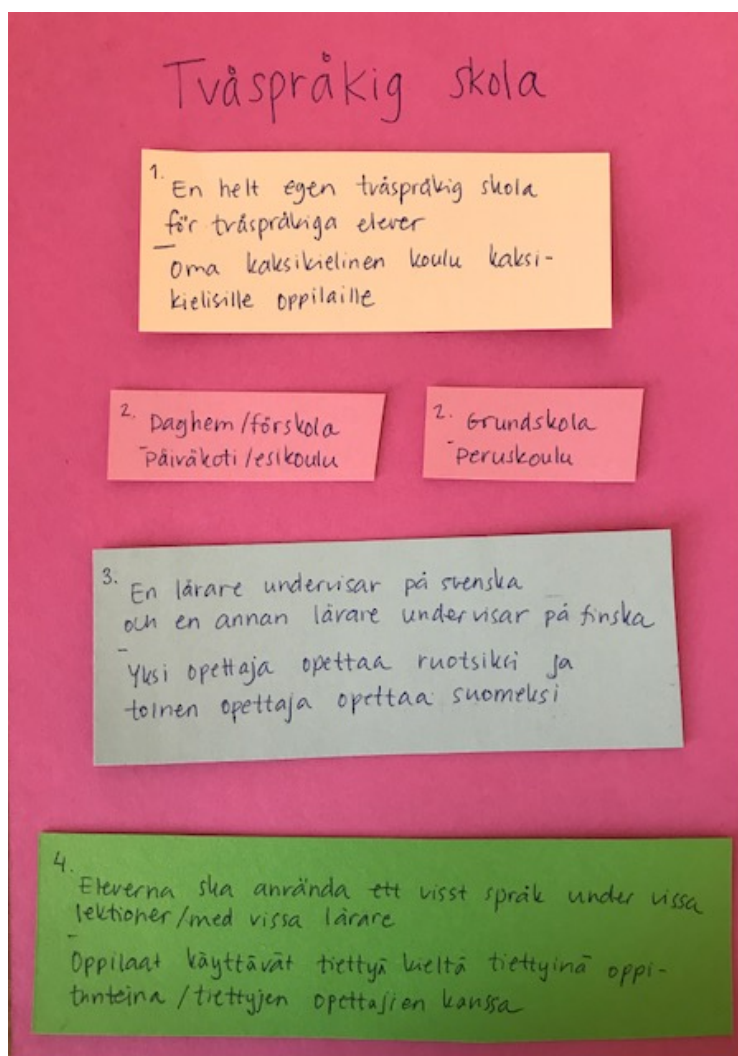 Tvåspråkig skola
1.
En helt egen tvåspråkig skola
för tvåspråkiga elever
-
Oma kaksikielinen koulu kaksi-
kielisille oppilaille
2. Daghem/förskola
- Päiväkoti/esikoulu
2. Grundskola
- Peruskoulu
3.
En lärare undervisar på svenska
och en annan lärare undervisar på finska
-
Yksi opettaja opettaa ruotsiksi ja
toinen opettaja opettaa suomeksi
4.
Eleverna ska använda ett visst språk under vissa
lektioner/med vissa lärare
-
Oppilaat käyttävät tiettyä kieltä tiettyinä oppi-
tunteina/tiettyjen opettajien kanssa